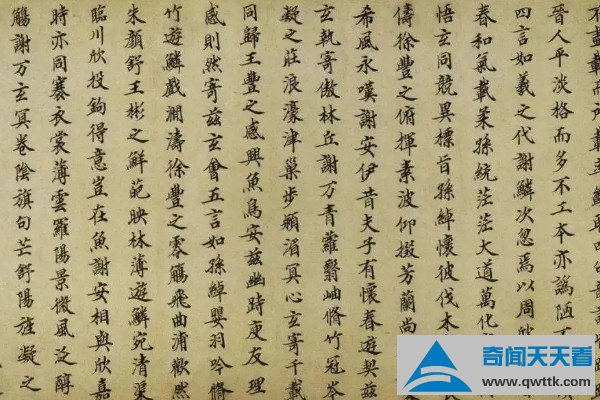 晉人平淡格而多不工夲亦謭陋
四言如羲之代謝鱗次忽焉以周
春和氣載柔孫統茫茫大道萬化
悟玄同競異標旨孫綽懷彼伐木
儔徐豐之俯揮素波仰掇芳蘭尚
希風永嘆謝安伊昔夫子有懷春遊契兹
玄執寄傲林丘謝万青蘿翳岫脩竹冠岑
凝之莊浪濠津巢步潁湄冥心玄寄千載
同歸王豐之感興魚鳥安兹幽跱庾友理
感則然寄兹玄會五言如孫綽嚶羽吟脩
竹遊鱗戲澗濤徐豐之零觴飛曲浦歡然
朱顏舒王彬之鮮葩映林薄遊鱗宛清渠
臨川欣投鉤得意豈在魚謝安相與欣嘉
時亦同褰衣裳薄雲羅陽景微風泛醇
觴謝万玄冥卷陰旗句芒舒陽旌凝之
奇闻天天看
www.qwttk.com